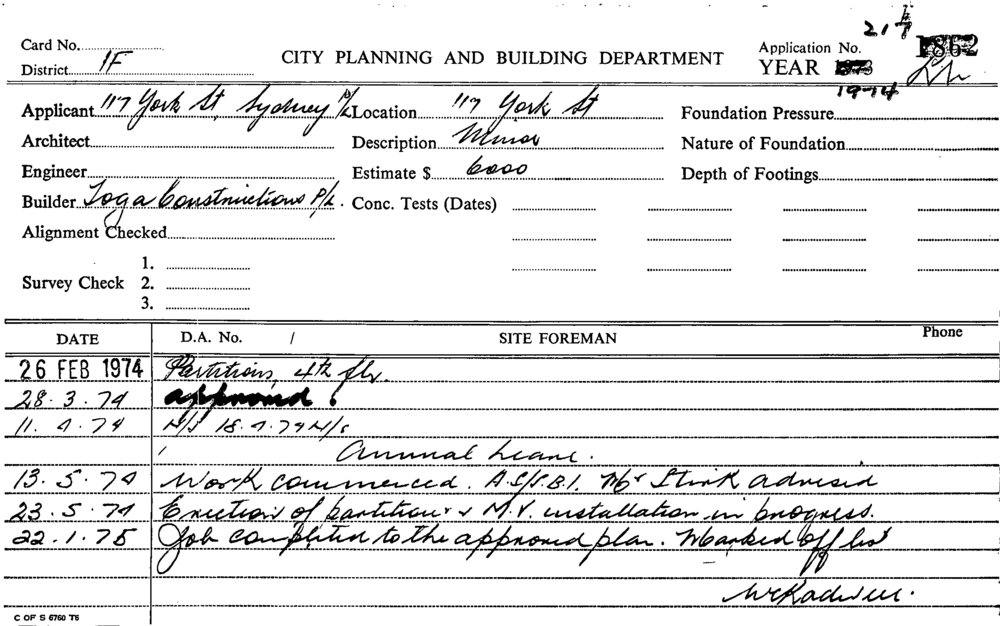 21
Card No. Application No. 1862
District 1F CITY PLANNING AND BUILDING DEPARTMENT YEAR 1973
1974
Applicant 117 York St Sydney P/L Location 117 York St Foundation Pressure
Architect Description Minor Nature of Foundation
Engineer Estimate $ 6000 Depth of Footings
Builder Toga Constructions P/L. Conc. Tests (Dates)
Alignment Checked
1.
Survey Check 2.
3.
DATE D.A. No. / SITE FOREMAN Phone
26 FEB 1974 Partitions, 4th flr.
28.3.74 approved
11.4.74 N/S 18.4.74 N/S
Annual Leave.
13.5.74 Work commenced. Mr Stink advised
23.5.74 Erection of partitions & M.V. installation in progress.
22.1.75 Job completed to the approved plan. Marked off list
C OF S 6760 T6